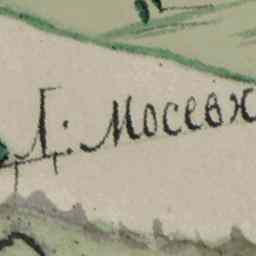 Д: Мосевж